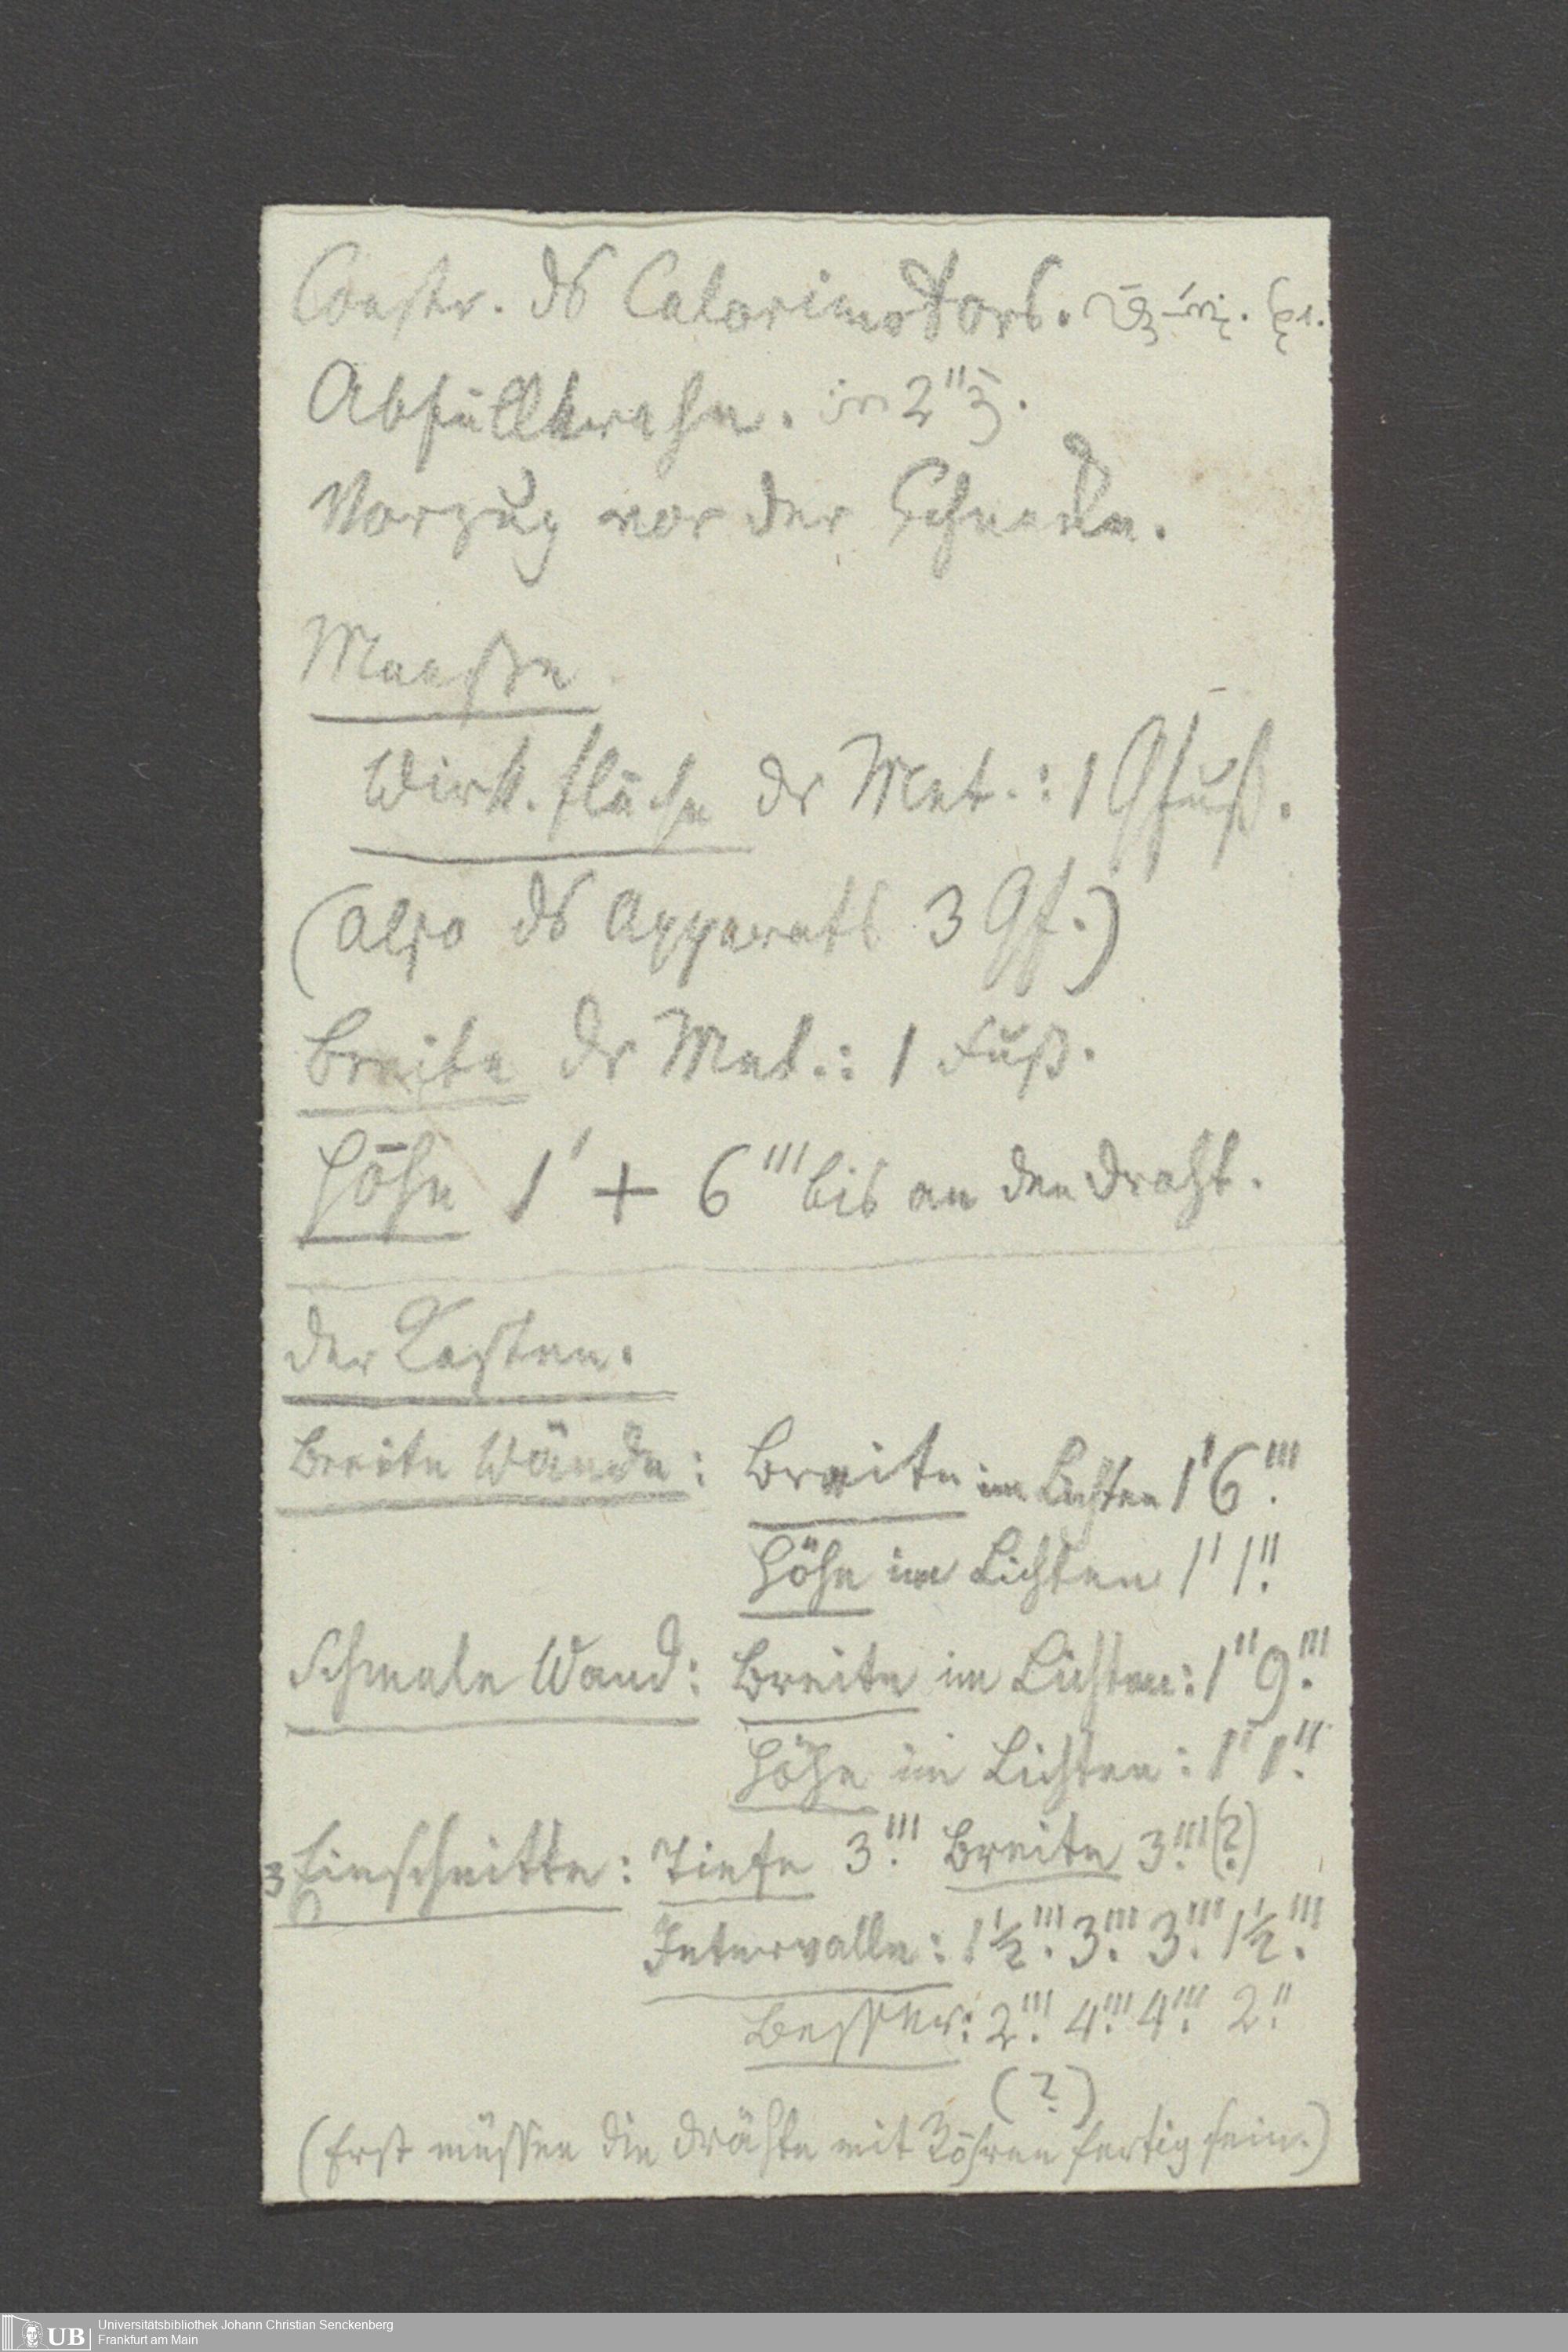 Constr. ds Calorimotors.
Abfüllkrahn. 2"
Vorzug vor der
Maasse
Wirk. fläche dr Met.: 1 Qfuß.
(Also ds Apparats 3 Qf.)
Breite dr Met.: 1 Fuß.
Höhe 1' + 6''' bis an den Draht.
Der Kasten.
Breite Wände: Breite im Lichten 1' 6'''.
Höhe im Lichten 1' 1".
Schmale Wand: Breite im Lichten: 1" 9'''.
Höhe im Lichten: 1' 1".
3 Einschnitte: Tiefe 3'''. Breite 3'''. (?)
Intervalle: 1½'''. 3'''. 3'''. 1½'''.
Besser: 2'''. 4'''. 4'''. 2".
(?)
(Erst müssen die Drähte mit Röhren fertig sein.)
Universitätsbibliothek Johann Christian Senckenberg
UB Frankfurt am Main